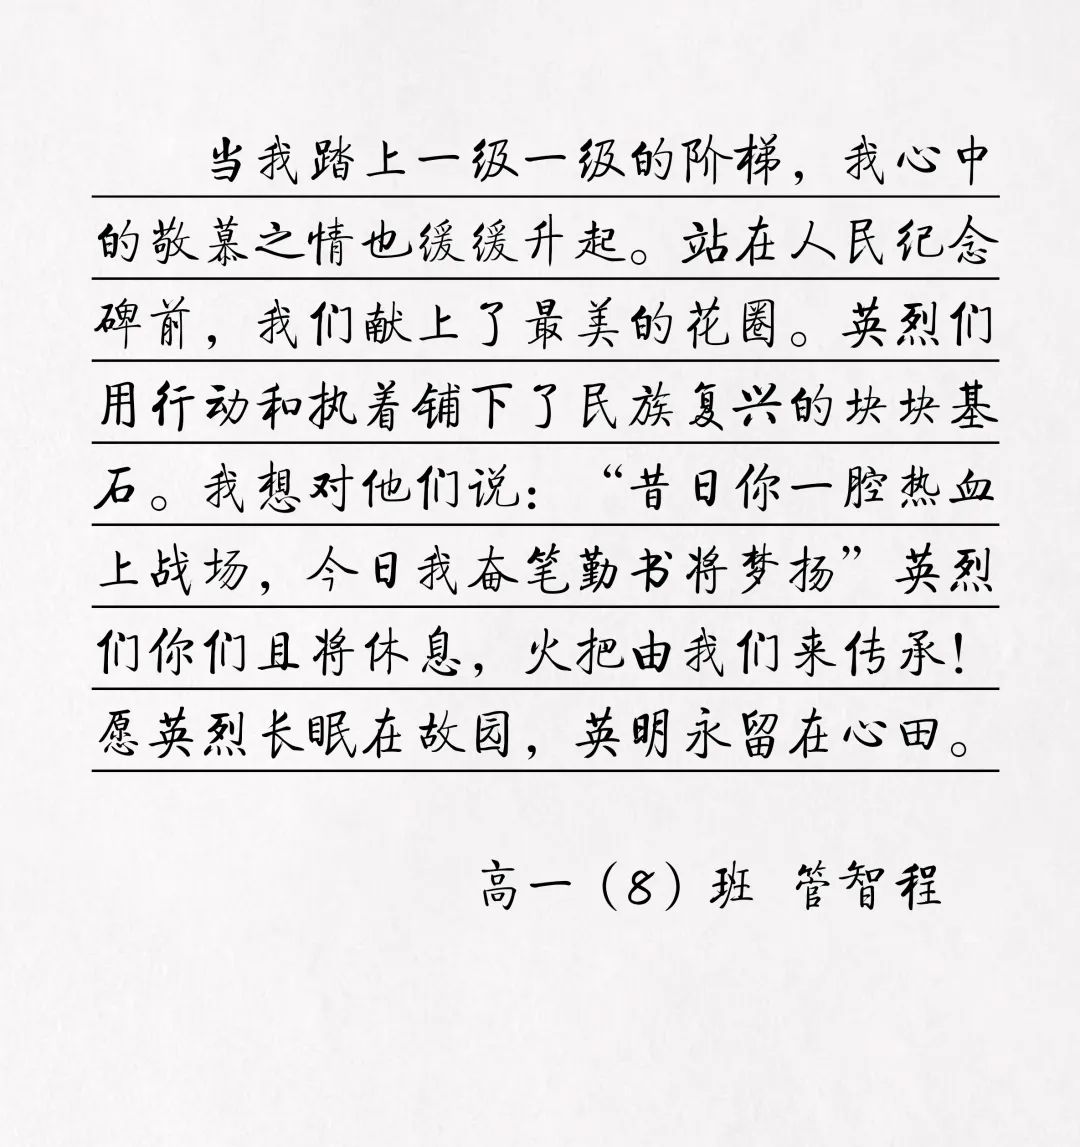 当我踏上一级一级的阶梯，我心中
的敬慕之情也缓缓升起。站在人民纪念
碑前，我们献上了最美的花圈。英烈们
用行动和执着铺下了民族复兴的块块基
石。我想对他们说：“昔日你一腔热血
上战场，今日我奋笔勤书将梦扬”英烈
们你们且将休息，火把由我们来传承！
愿英烈长眠在故园，英明永留在心田。
高一（8）班 管智程